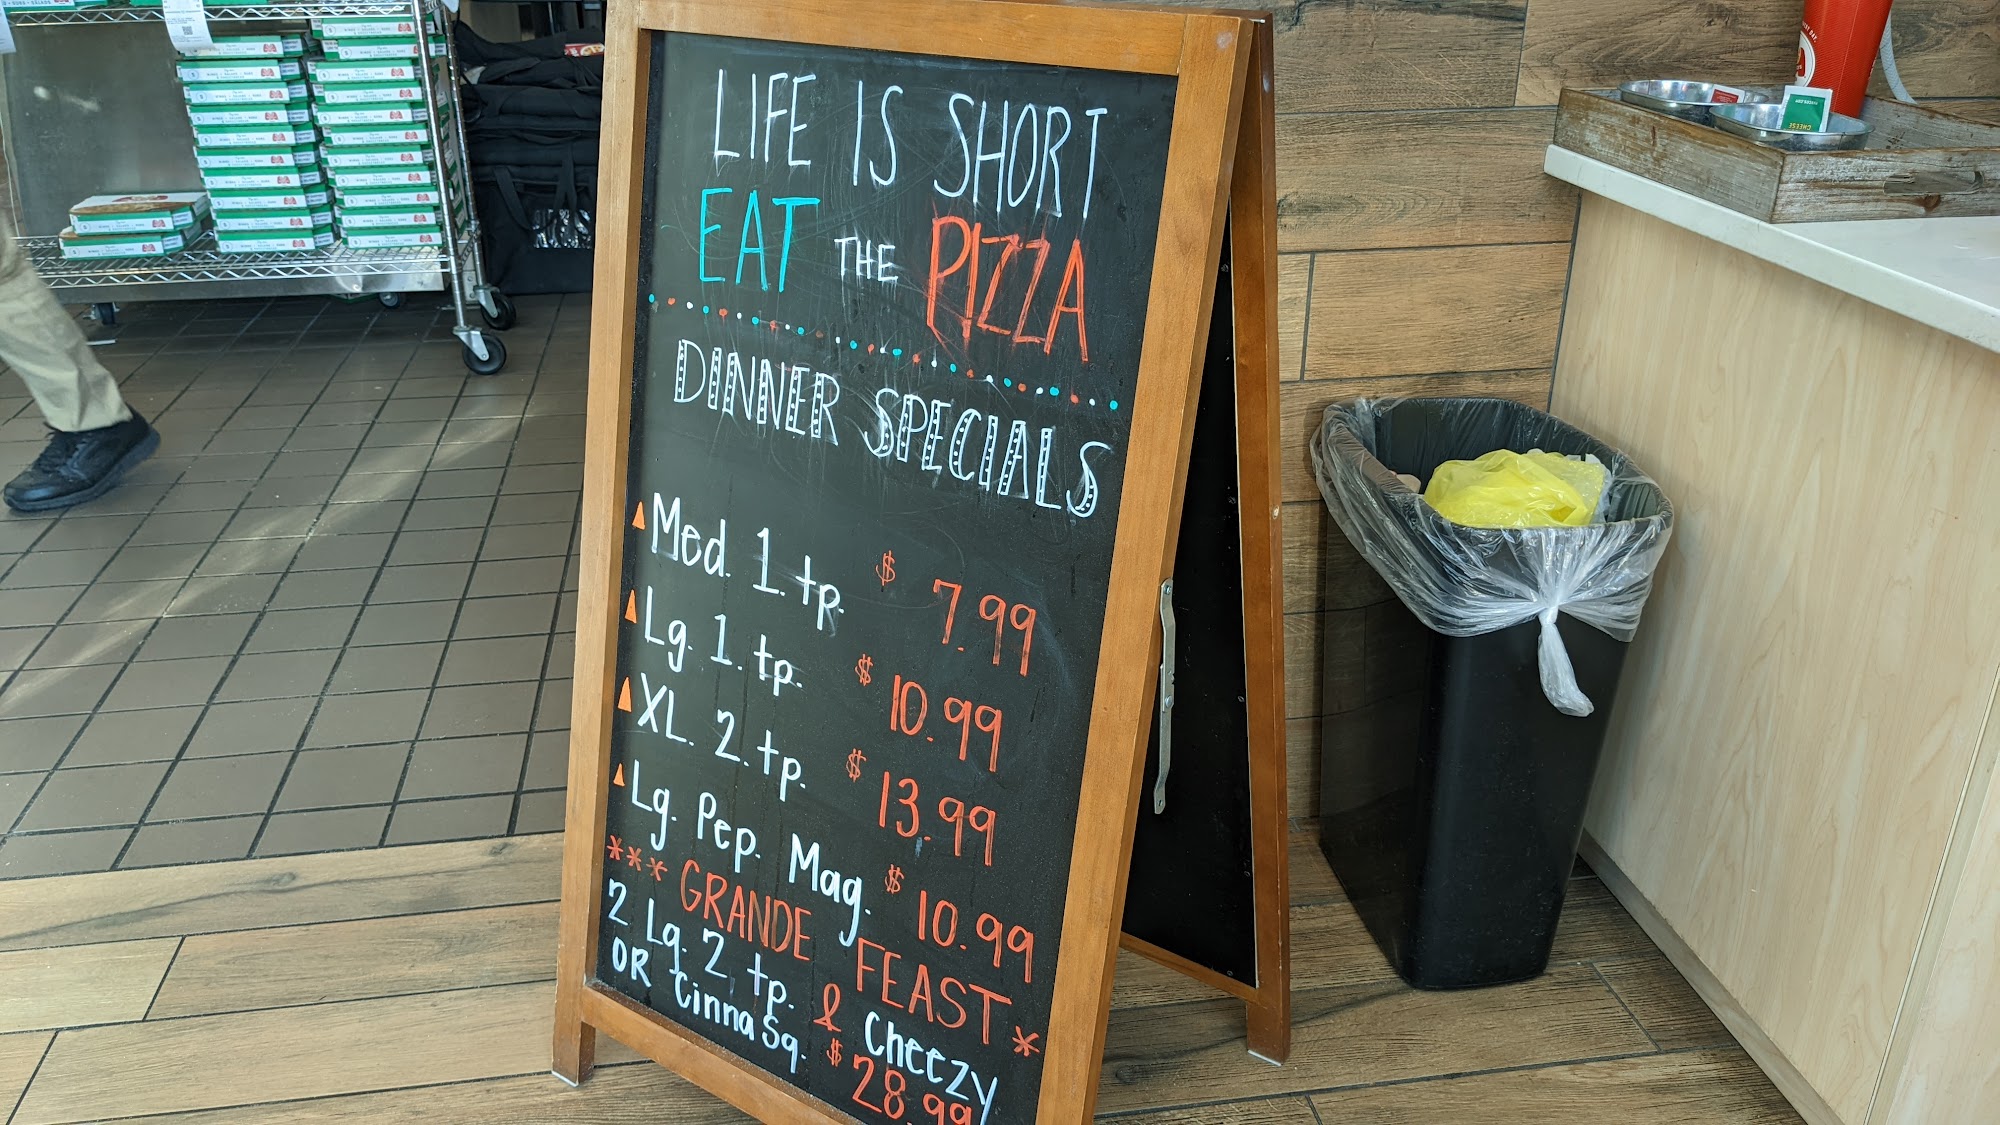 LIFE IS SHORT
EAT THE PIZZA
DINNER SPECIALS
Med. 1. tp. $ 7.99
Lg. 1. tp. $ 10.99
XL. 2. tp. $ 13.99
Lg. Pep. Mag. $ 10.99
*** GRANDE FEAST *
2 Lg. 2 tp. & Cheezy
OR CinnaSq. $ 28.99
CHEESE